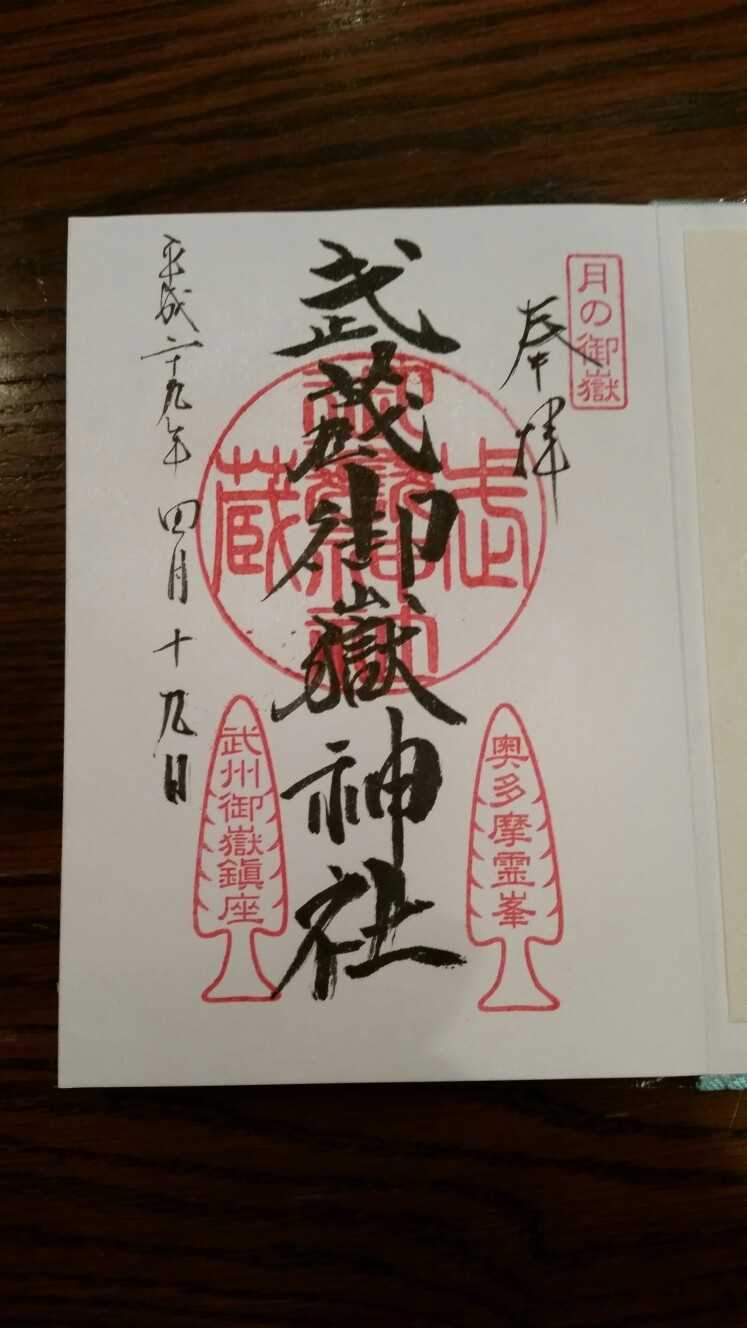 月の御嶽
奉拝
武蔵御嶽神社
奥多摩霊峯
武州御嶽鎮座
平成二十九年四月十九日